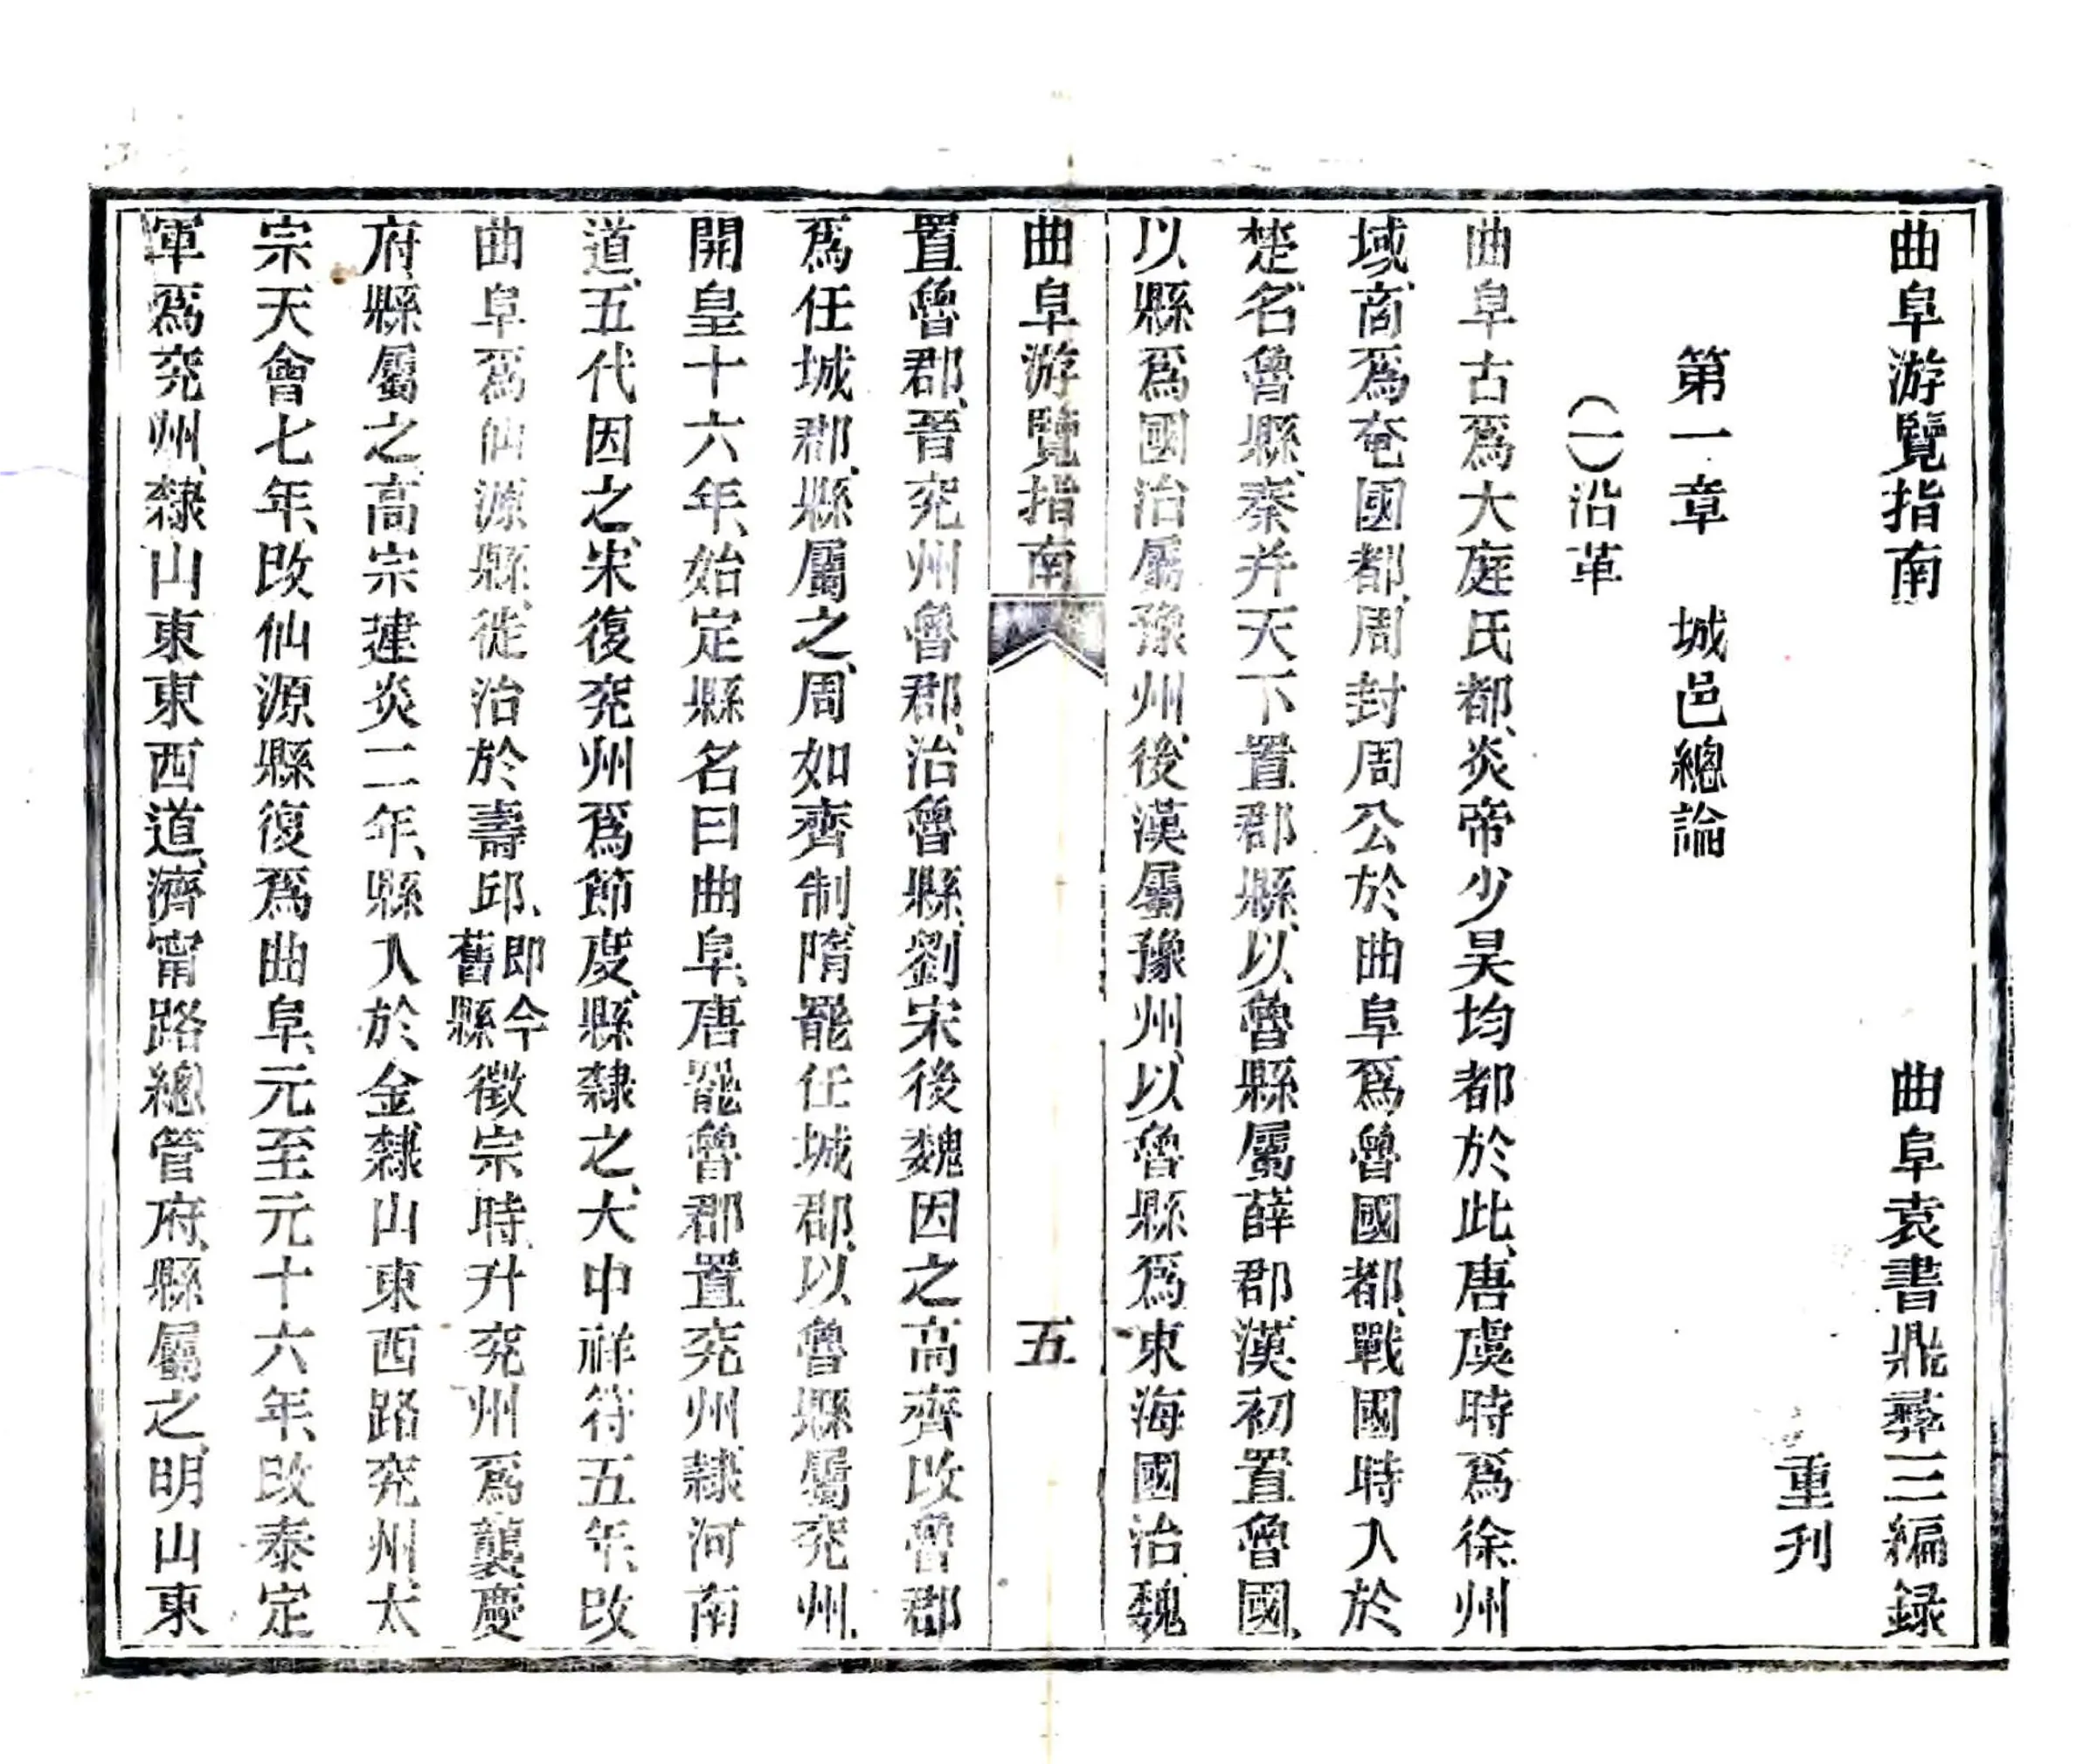 曲阜游覽指南　曲阜袁書鼎彝三編録
重刊
第一章　城邑總論
（一）沿革
曲阜古爲大庭氏都、炎帝少昊均都於此、唐虞時爲徐州
域、商爲奄國都、周封周公於曲阜爲魯國都、戰國時入於
楚、名魯縣、秦并天下置郡縣、以魯縣屬薛郡、漢初置魯國、
以縣爲國治屬豫州、後漢屬豫州、以魯縣爲東海國治、魏
曲阜游覽指南　五
置魯郡、晉兖州魯郡、治魯縣、劉宋後魏因之、高齊改魯郡
爲任城郡、縣屬之、周如齊制、隋罷任城郡、以魯縣屬兖州、
開皇十六年、始定縣名曰曲阜、唐罷魯郡置兖州、隸河南
道、五代因之、宋復兖州爲節度、縣隸之、大中祥符五年、改
曲阜爲仙源縣、徙治於壽邱、即今舊縣徵宗時、升兖州爲襲慶
府、縣屬之、高宗建炎二年、縣入於金、隸山東西路兖州、太
宗天會七年、改仙源縣復爲曲阜、元至元十六年、改泰定
軍爲兖州、隸山東東西道、濟甯路總管府、縣屬之、明山東